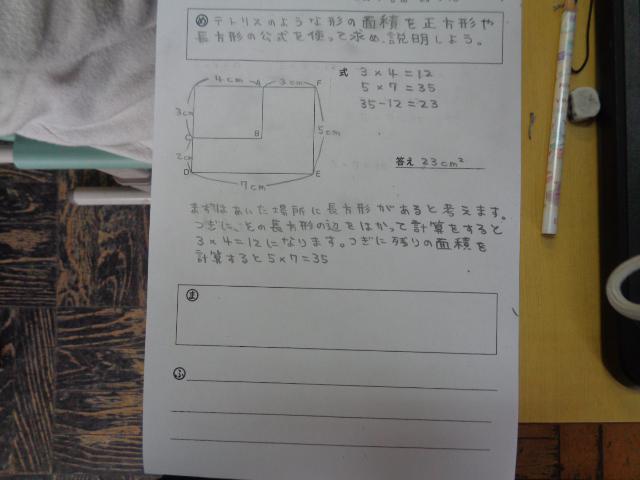 め テトリスのような形の面積を正方形や
長方形の公式を使って求め、説明しよう。
4cm A 3cm F
3cm
C B 5cm
2cm
D E
7cm
式 3×4=12
5×7=35
35-12=23
答え 23cm²
まずはあいた場所に長方形があると考えます。
つぎに、その長方形の辺をはかって計算をすると
3×4=12になります。つぎに残りの面積を
計算すると5×7=35
ま
ふ